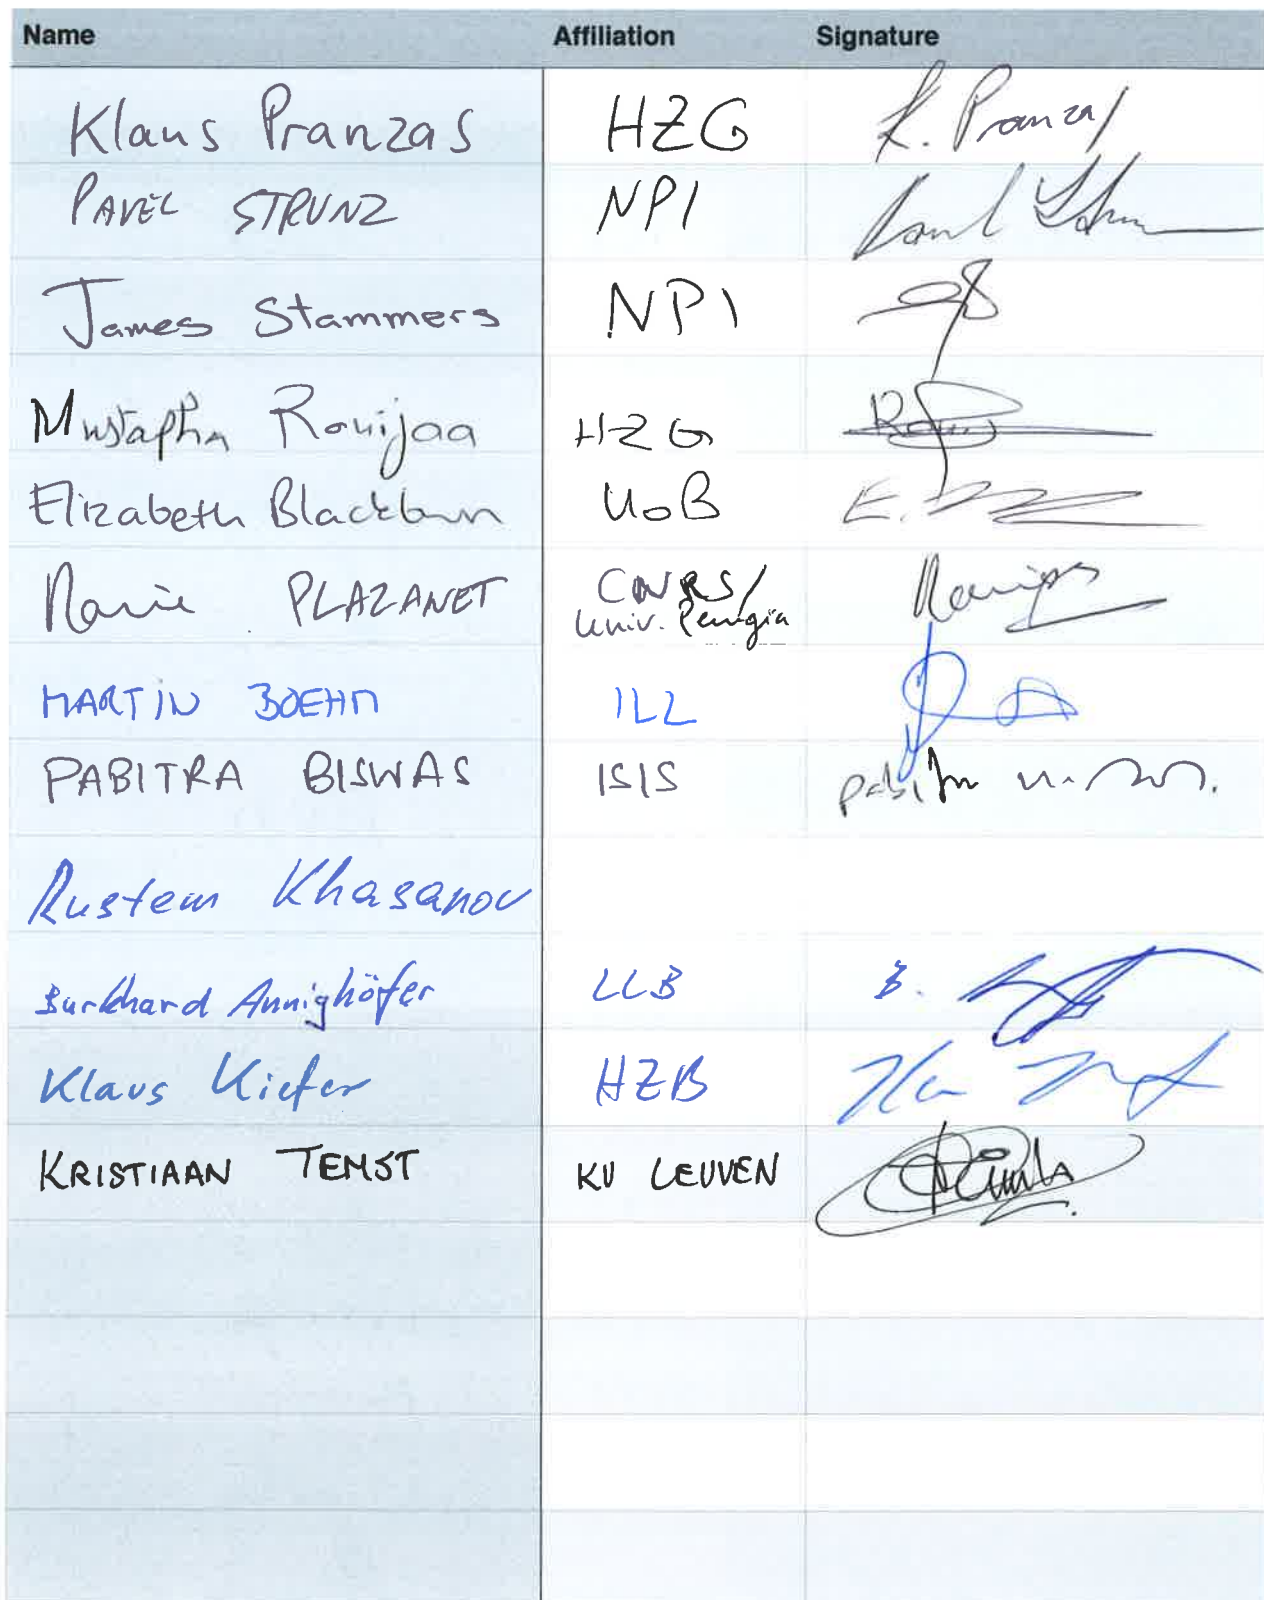 Name Affiliation Signature
Klaus Pranzas HZG K. Pranzas
PAVEL STRUNZ NPI
James Stammers NPI
Mustapha Rouijaa HZG
Elizabeth Blackburn UoB E.
Marie PLAZANET CNRS/
Univ. Perugia
MARTIN BOEHM ILL
PABITRA BISWAS ISIS
Rustem Khasanov
Burkhard Annighöfer LLB B.
Klaus Kiefer HZB
KRISTIAAN TEMST KU LEUVEN